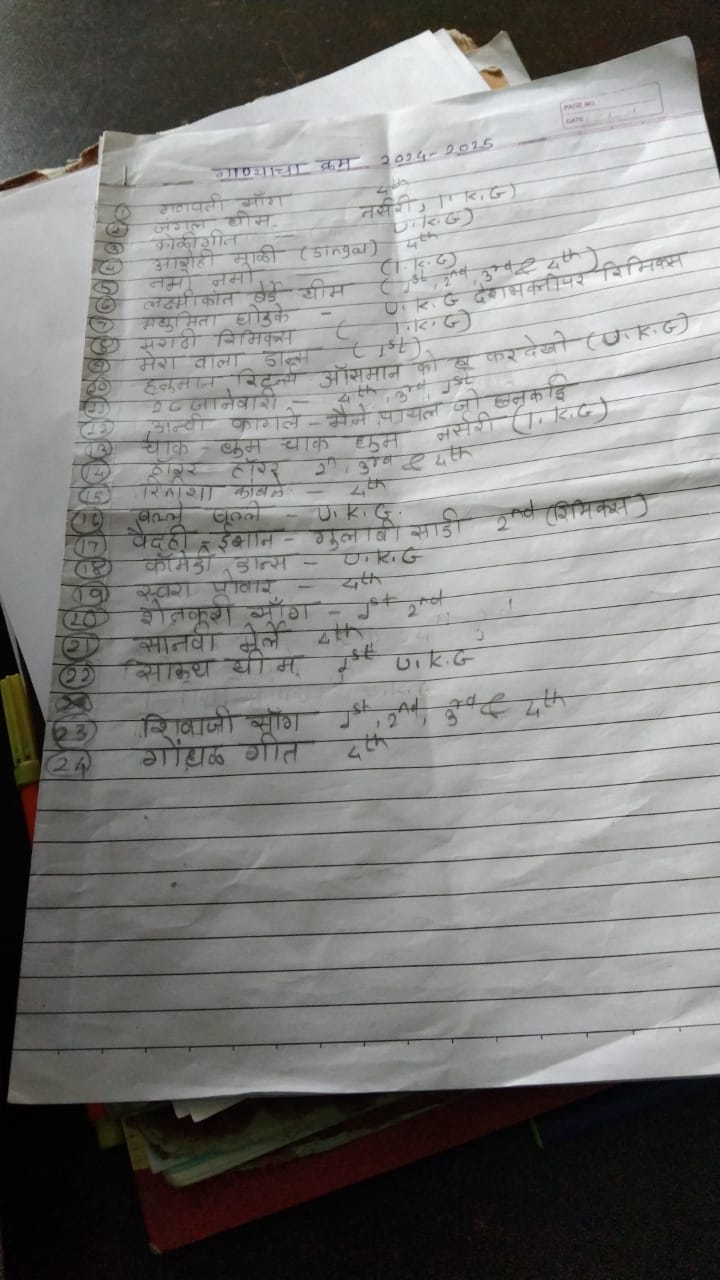 PAGE NO.
DATE
गाण्याचा क्रम 2024-2025
① गणपती सॉंग 4th
② जंगल थीम - नर्सरी, L.K.G)
③ कोळीगीत - U.K.G)
④ आरोही माळी (singal) 4th
⑤ नमो नमो - (L.K.G)
⑥ लक्ष्मीकांत बेर्डे थीम (1st, 2nd, 3rd & 4th)
⑦ मधुमिता घोडके - U.K.G देशभक्तीपर रिमिक्स
⑧ मराठी रिमिक्स ( L.K.G)
⑨ मेरा वाला डान्स (1st)
⑩ हनुमान ऑसमान को छू कर देखो (U.K.G)
⑪ 26 जानेवारी - 4th, 3rd, 1st
⑫ अन्वी कागले - मैने पायल जो छनकाई
⑬ चाक धुम चाक धुम नर्सरी (L.K.G)
⑭ हॉरर हॉरर 2n, 3rd & 4th
⑮ कांबळे - 4th
⑯ बल्ले बल्ले - U.K.G.
⑰ वैदही - ईशान - गुलाबी साडी 2nd (रिमिक्स)
⑱ कॉमेडी डान्स - U.K.G
⑲ स्वरा पोवार - 4th
⑳ शेतकरी सॉंग - 1st 2nd
㉑ सानवी 4th
㉒ साऊथ थीम 1st U.K.G
㉓ शिवाजी सॉंग 1st, 2nd, 3rd & 4th
㉔ गोंधळ गीत 4th